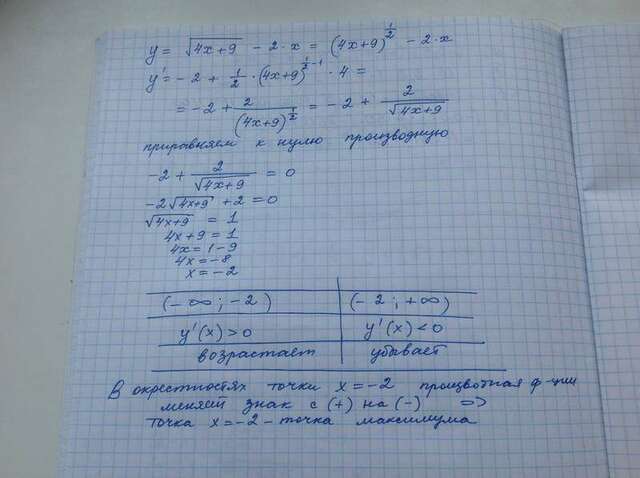 y = √(4x+9) - 2·x = (4x+9)^(1/2) - 2·x
y' = -2 + 1/2·(4x+9)^(1/2-1)·4 =
= -2 + 2/(4x+9)^(1/2) = -2 + 2/√(4x+9)
приравняем к нулю производную
-2 + 2/√(4x+9) = 0
-2√(4x+9) + 2 = 0
√(4x+9) = 1
4x+9 = 1
4x = 1-9
4x = -8
x = -2
(-∞; -2) (-2; +∞)
y'(x) > 0 y'(x) < 0
возрастает убывает
В окрестностях точки x = -2 процвотная ф-ции
меняет знак с (+) на (-) =>
точка x = -2 - точка максимума